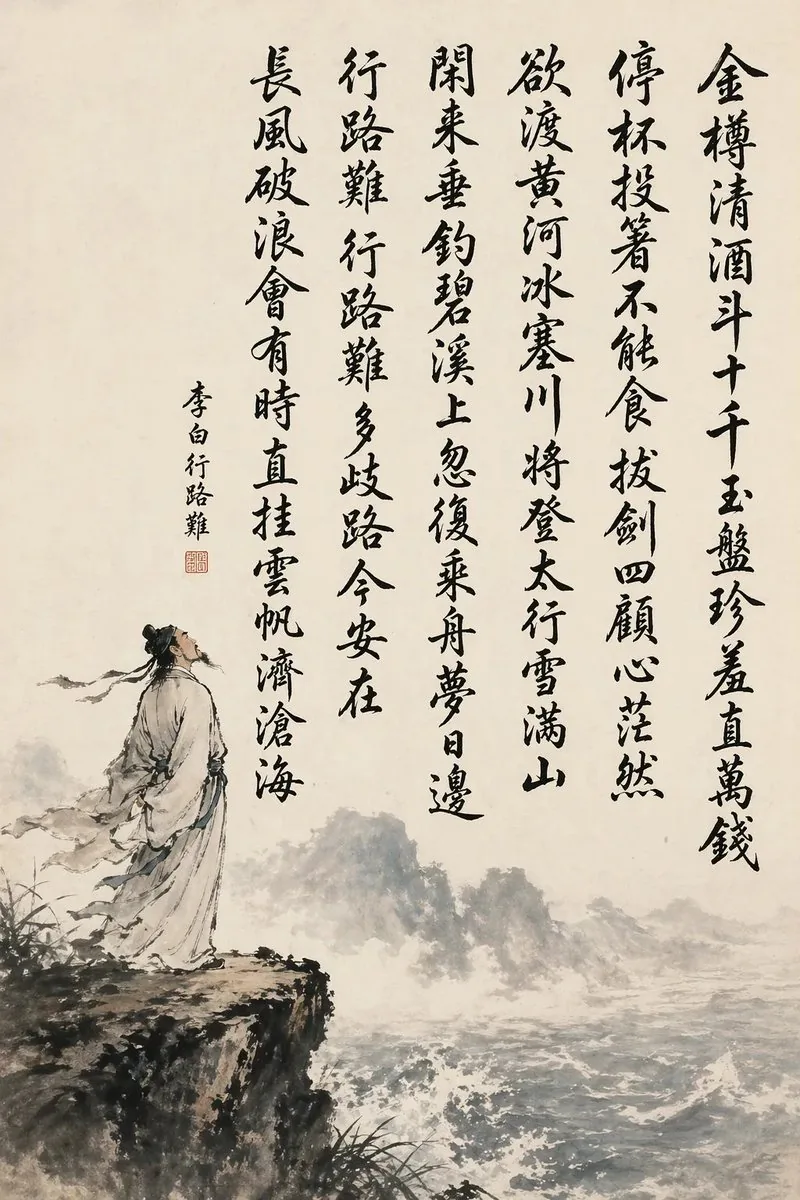 金樽清酒斗十千玉盤珍羞直萬錢
停杯投箸不能食拔劍四顧心茫然
欲渡黄河冰塞川将登太行雪满山
閑来垂釣碧溪上忽復乘舟夢日邊
行路難行路難多歧路今安在
長風破浪會有時直挂雲帆濟滄海
李白行路難